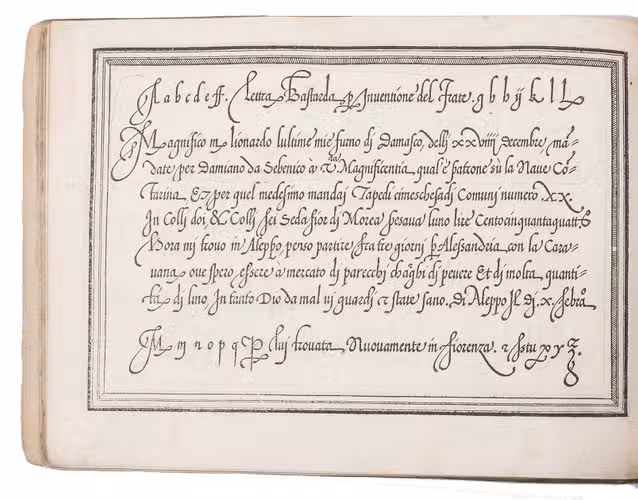 A a b c d e f f. Lettra Bastarda p Inventione del Frate. g h h ij k l L
Magnifico m lionardo lultime mie furno dj Damasco, dellj xxviiij decembre, mã=
date, per Damiano da Sebenico à vrã Magnificentia qual' è patrone sù la Naue, Cõ=
tarina, Et per quel medesimo mandaj Tapedi Comunj numero .XX.
In Collj doi, & Collj sei Seda fior di Morea pesaua luno lire
Hora mi trouo in Aleppo, penso partire fra tre giornj p Alessandria, con la Cara=
uana, oue spero, essere à mercato dj parecchi dj peuere Et dj molta quanti=
tà, dj lino, In tanto Dio da mal vi guardi & state sano. Di Aleppo Il dj .x. febro
M m n o p q luj trouata, Nuouamente in fiorenza. r s t u x y z